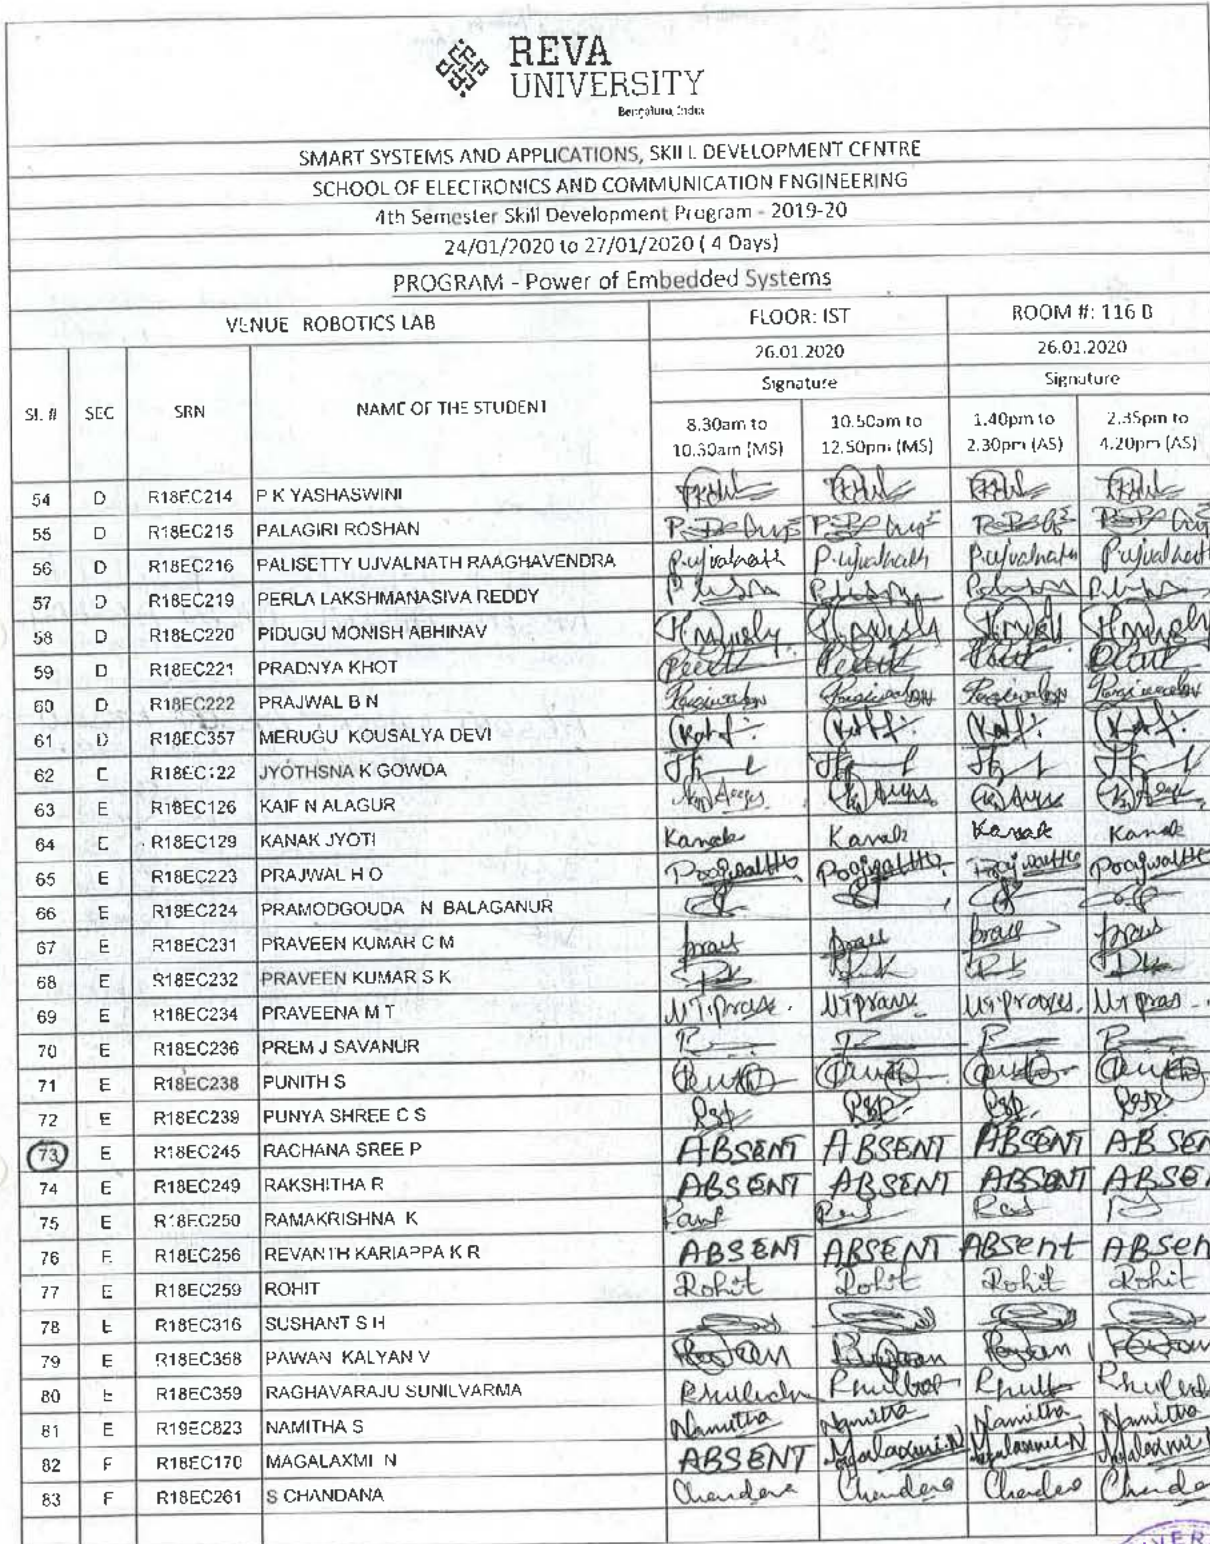 REVA
UNIVERSITY
Bengaluru, India
SMART SYSTEMS AND APPLICATIONS, SKILL DEVELOPMENT CENTRE
SCHOOL OF ELECTRONICS AND COMMUNICATION ENGINEERING
4th Semester Skill Development Program - 2019-20
24/01/2020 to 27/01/2020 ( 4 Days)
PROGRAM - Power of Embedded Systems
VENUE ROBOTICS LAB FLOOR: IST ROOM #: 116 B
26.01.2020 26.01.2020
Signature Signature
SL # SEC SRN NAME OF THE STUDENT 8.30am to 10.50am to 1.40pm to 2.35pm to
10.30am (MS) 12.50pm (MS) 2.30pm (AS) 4.20pm (AS)
54 D R18EC214 P K YASHASWINI
55 D R18EC215 PALAGIRI ROSHAN
56 D R18EC216 PALISETTY UJVALNATH RAAGHAVENDRA P.Ujvalnath P.Ujvalnath P.Ujvalnath P.Ujvalnath
57 D R18EC219 PERLA LAKSHMANASIVA REDDY
58 D R18EC220 PIDUGU MONISH ABHINAV
59 D R18EC221 PRADNYA KHOT
60 D R18EC222 PRAJWAL B N
61 D R18EC357 MERUGU KOUSALYA DEVI
62 E R18EC122 JYOTHSNA K GOWDA
63 E R18EC126 KAIF N ALAGUR
64 E R18EC129 KANAK JYOTI Kanak Kanak Kanak Kanak
65 E R18EC223 PRAJWAL H O
66 E R18EC224 PRAMODGOUDA N BALAGANUR
67 E R18EC231 PRAVEEN KUMAR C M
68 E R18EC232 PRAVEEN KUMAR S K
69 E R18EC234 PRAVEENA M T
70 E R18EC236 PREM J SAVANUR
71 E R18EC238 PUNITH S
72 E R18EC239 PUNYA SHREE C S
73 E R18EC245 RACHANA SREE P ABSENT ABSENT ABSENT ABSEN
74 E R18EC249 RAKSHITHA R ABSENT ABSENT ABSENT ABSE
75 E R18EC250 RAMAKRISHNA K
76 E R18EC256 REVANTH KARIAPPA K R ABSENT ABSENT ABSent ABSen
77 E R18EC259 ROHIT Rohit Rohit Rohit Rohit
78 E R18EC316 SUSHANT S H
79 E R18EC358 PAWAN KALYAN V
80 E R18EC359 RAGHAVARAJU SUNILVARMA
81 E R19EC823 NAMITHA S Namitha Namitha Namitha Namitha
82 F R18EC170 MAGALAXMI N ABSENT Magalaxmi.N Magalaxmi.N Magalaxmi
83 F R18EC261 S CHANDANA Chandana Chandana Chandana Chanda
VER